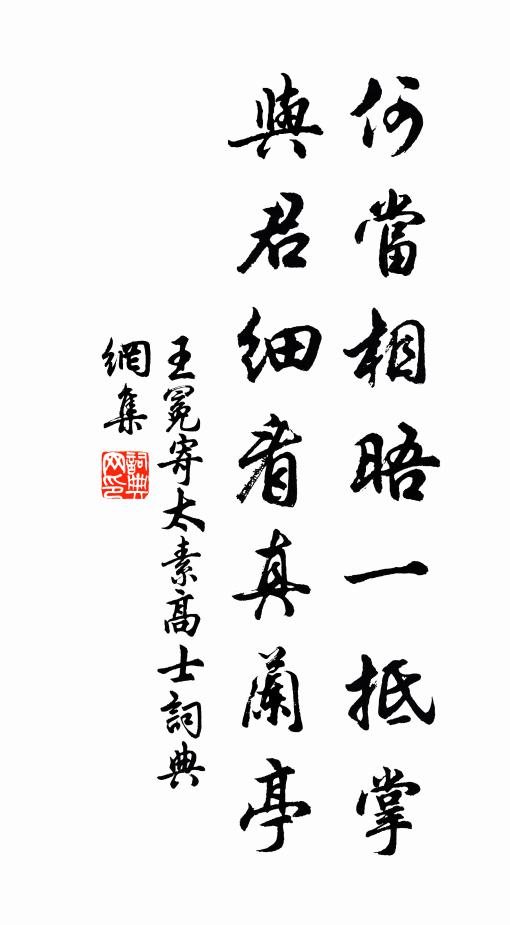 何當相晤一抵掌
與君細看真蘭亭
王冕寄太素高士詞典
網集
詞典网印